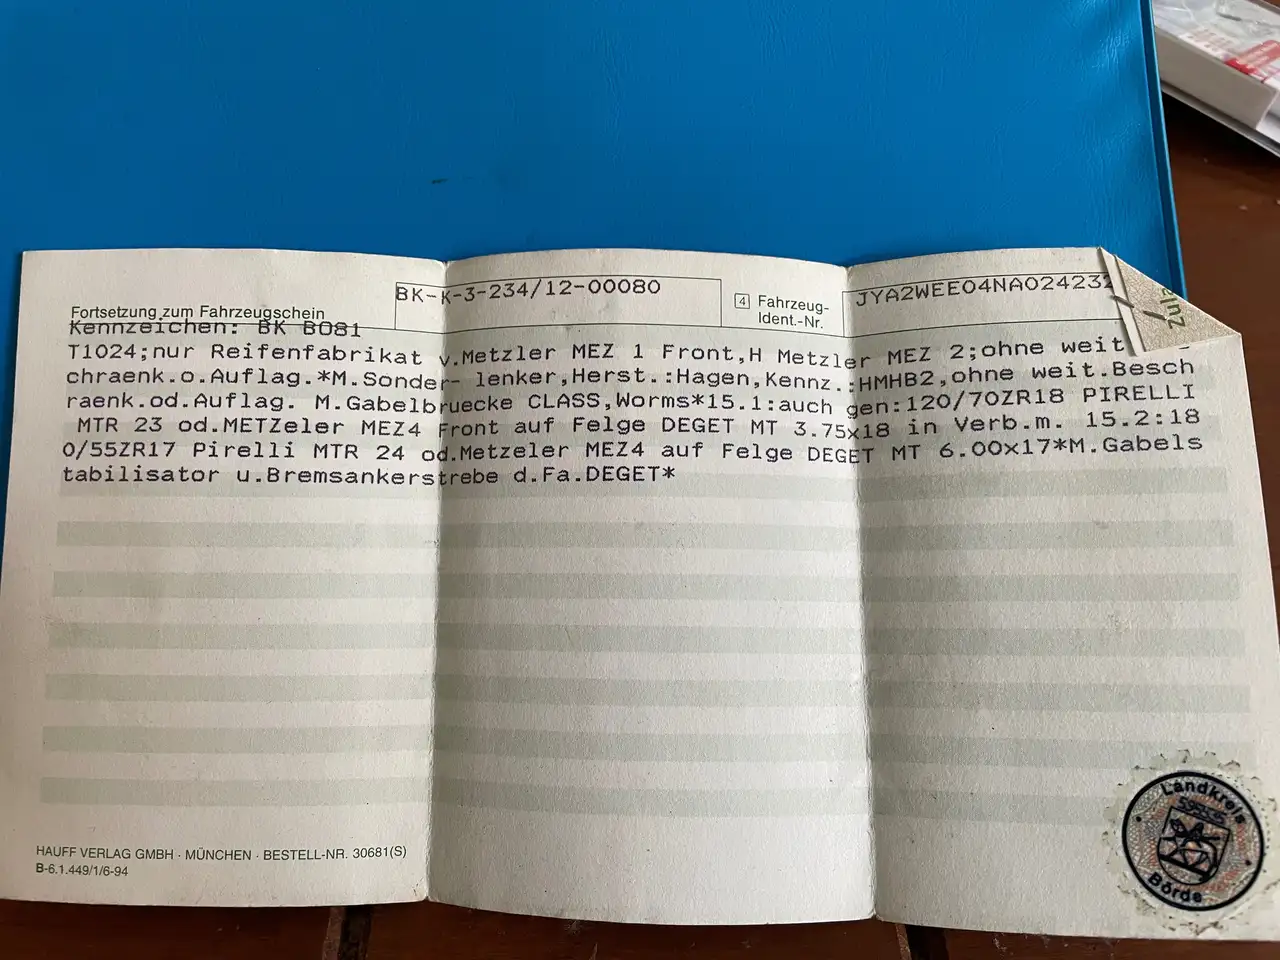 Fortsetzung zum Fahrzeugschein
BK-K-3-234/12-00080
4 Fahrzeug-
Ident.-Nr.
JYA2WEE04NA024232
Kennzeichen: BK BO81
T1024;nur Reifenfabrikat v.Metzler MEZ 1 Front,H Metzler MEZ 2;ohne weit
chraenk.o.Auflag.*M.Sonder- lenker,Herst.:Hagen,Kennz.:HMHB2,ohne weit.Besch
raenk.od.Auflag. M.Gabelbruecke CLASS,Worms*15.1:auch gen:120/70ZR18 PIRELLI
MTR 23 od.METZeler MEZ4 Front auf Felge DEGET MT 3.75x18 in Verb.m. 15.2:18
0/55ZR17 Pirelli MTR 24 od.Metzeler MEZ4 auf Felge DEGET MT 6.00x17*M.Gabels
tabilisator u.Bremsankerstrebe d.Fa.DEGET*
HAUFF VERLAG GMBH · MÜNCHEN · BESTELL-NR. 30681(S)
B-6.1.449/1/6-94
Landkreis
Börde